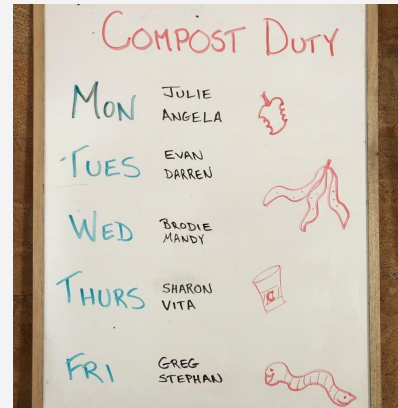 COMPOST DUTY
MON JULIE
ANGELA
TUES EVAN
DARREN
WED BRODIE
MANDY
THURS SHARON
VITA
C
FRI GREG
STEPHAN